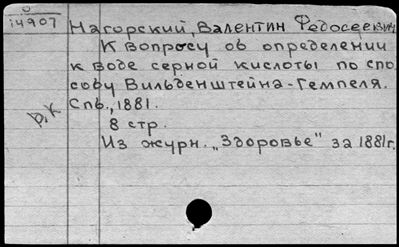 0
i4907
Нагорский, Валентин Федосеевич
К вопросу об определении
к воде серной кислоты по спо
собу Вильденштейна-Гемпеля.
Спб., 1881.
8 стр.
Из журн. „Здоровье" за 1881г.